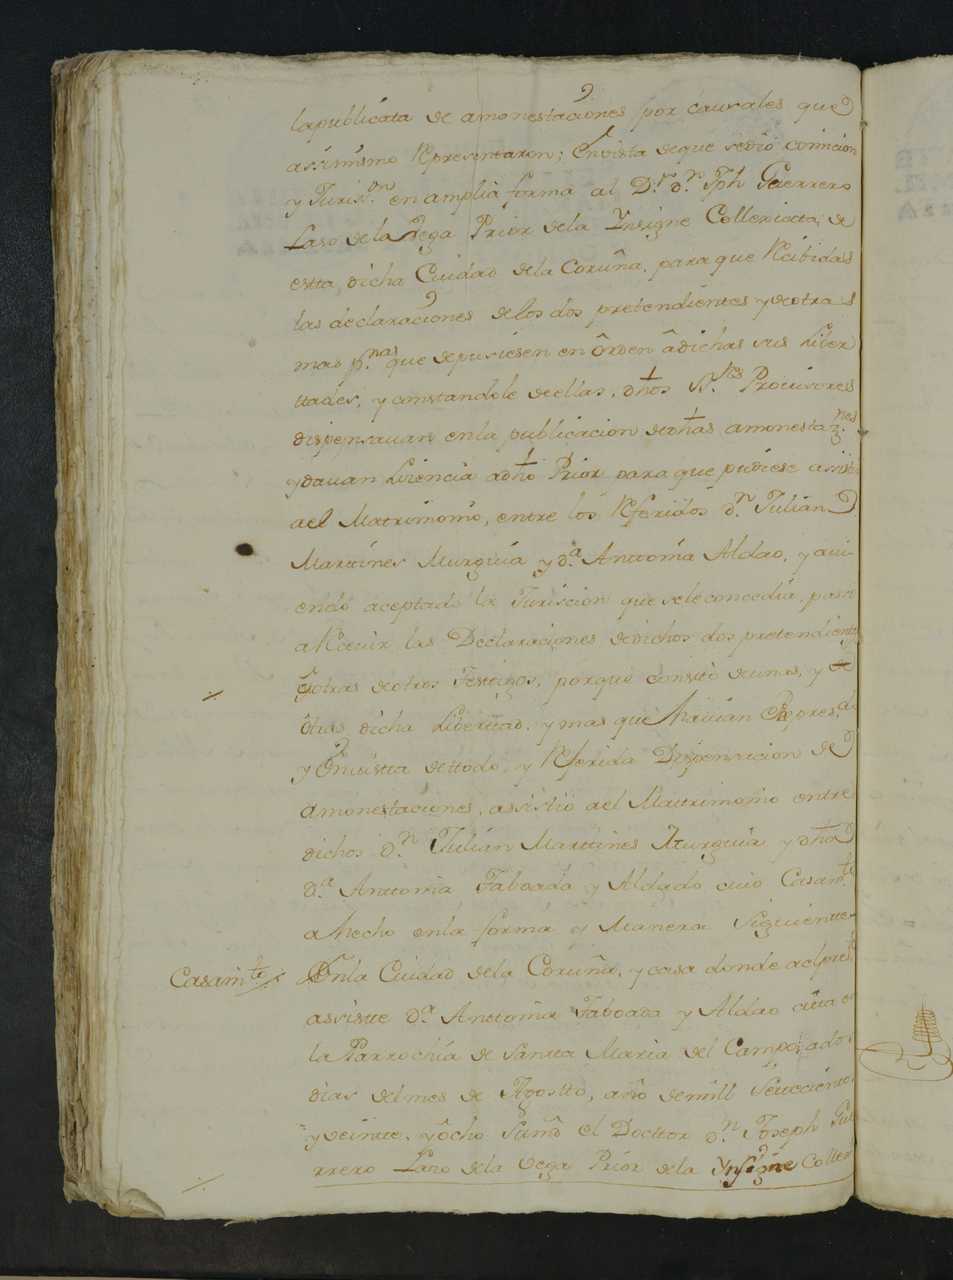 la publicata de amonestaciones por causales que
assimismo Representaron; En vista de que sedió comicion
y Juris.on en amplia forma al D.r d.n Jph Guerrero
Laso de la Vega Prior dela Ynsigne Collexiata de
estta dicha Ciudad de la Coruña, para que Recibidas
las declaraciones de los dos pretendientes y de otras
mas p.nas que depusiesen en ôrden âdichas sus Liber
ttades, y constandole de ellas, dhos SS.res Provisores
dispensauan en la publicacion de dhas amonestaz.nes
y dauan Licencia a dho Prior para que pudiese assistir
a el Matrimonio, entre los Referidos d.n Julian
Martines Murguia y d.a Anttonia Aldao, y aui-
endo aceptado la Juriscion que sele concedia, passó
a Receuir las Declaraciones de dichos dos pretendientes
y otras de otros Testigos, por que constó de unas, y de
ôtras dicha Liberttad, y mas que hauian Repres.do
y En uistta de ttodo, y Referida Dispensacion de
amonestaciones, assistió a el Matrimonio entre
dichos d.n Julian Martines Murguia y dha
d.a Anttonia Taboada y Aldado cuio Casam.to
a hecho en la forma y Manera Siguiente
Casam.to En la Ciudad de la Coruña, y casa donde a el pres.te
assiste d.a Anttonia Taboada y Aldao citta en
la Parrochia de Santta Maria del Campo, a dos
dias del mes de Agostto, año de mill Settecientos
y veinte, y ôcho Su md el Docttor d.n Joseph Gue
rrero Laso de la Vega Prior de la Ynsigne Colle